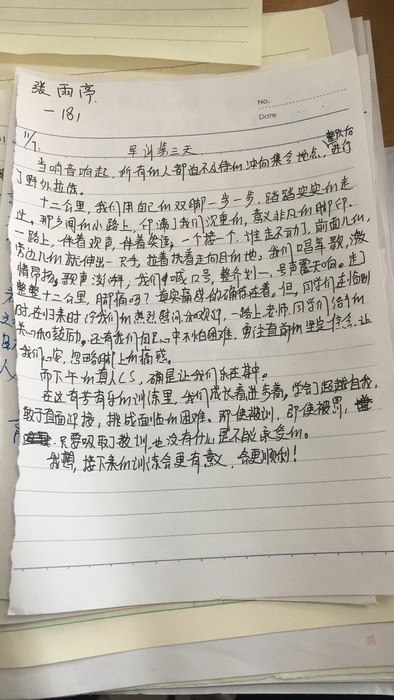 张雨亭
一18,
No.
Date
11/7.
军训第三天
当响音响起,所有的人都迫不及待的冲向集合地点,整队后进行
了野外拉练。
十二公里,我们用自己的双脚一步一步,踏踏实实的走
过。那乡间的小路上,印满了我们沉重的,意义非凡的脚印。
一路上,伴着歌声,伴着笑语,一个接一个,谁走不动了,前面的,
旁边的就伸出一只手,拉着扶着走向目的地。我们唱军歌,激
情昂扬。歌声澎湃,我们喊口号,整齐划一,号声震天响。走了
整整十二公里,脚痛吗?真实痛感的确存在着。但,同学们在临到
时,在归来时给我们的热烈慰问和欢迎,一路上老师,同学们给予的
关心和鼓励。还有我们自己心中不怕困难,勇往直前的坚定信念,让
我们心安,忽略脚上的痛感。
而下午的真人CS,确是让我们乐在其中。
在这有苦有乐的训练里,我们成长着进步着。学会了超越自我,
敢于直面迎接,挑战面临的困难。即使被训,即使被罚,
只要吸取了教训,也没有什么是不能承受的。
我想,接下来的训练会更有意义,会更顺利!